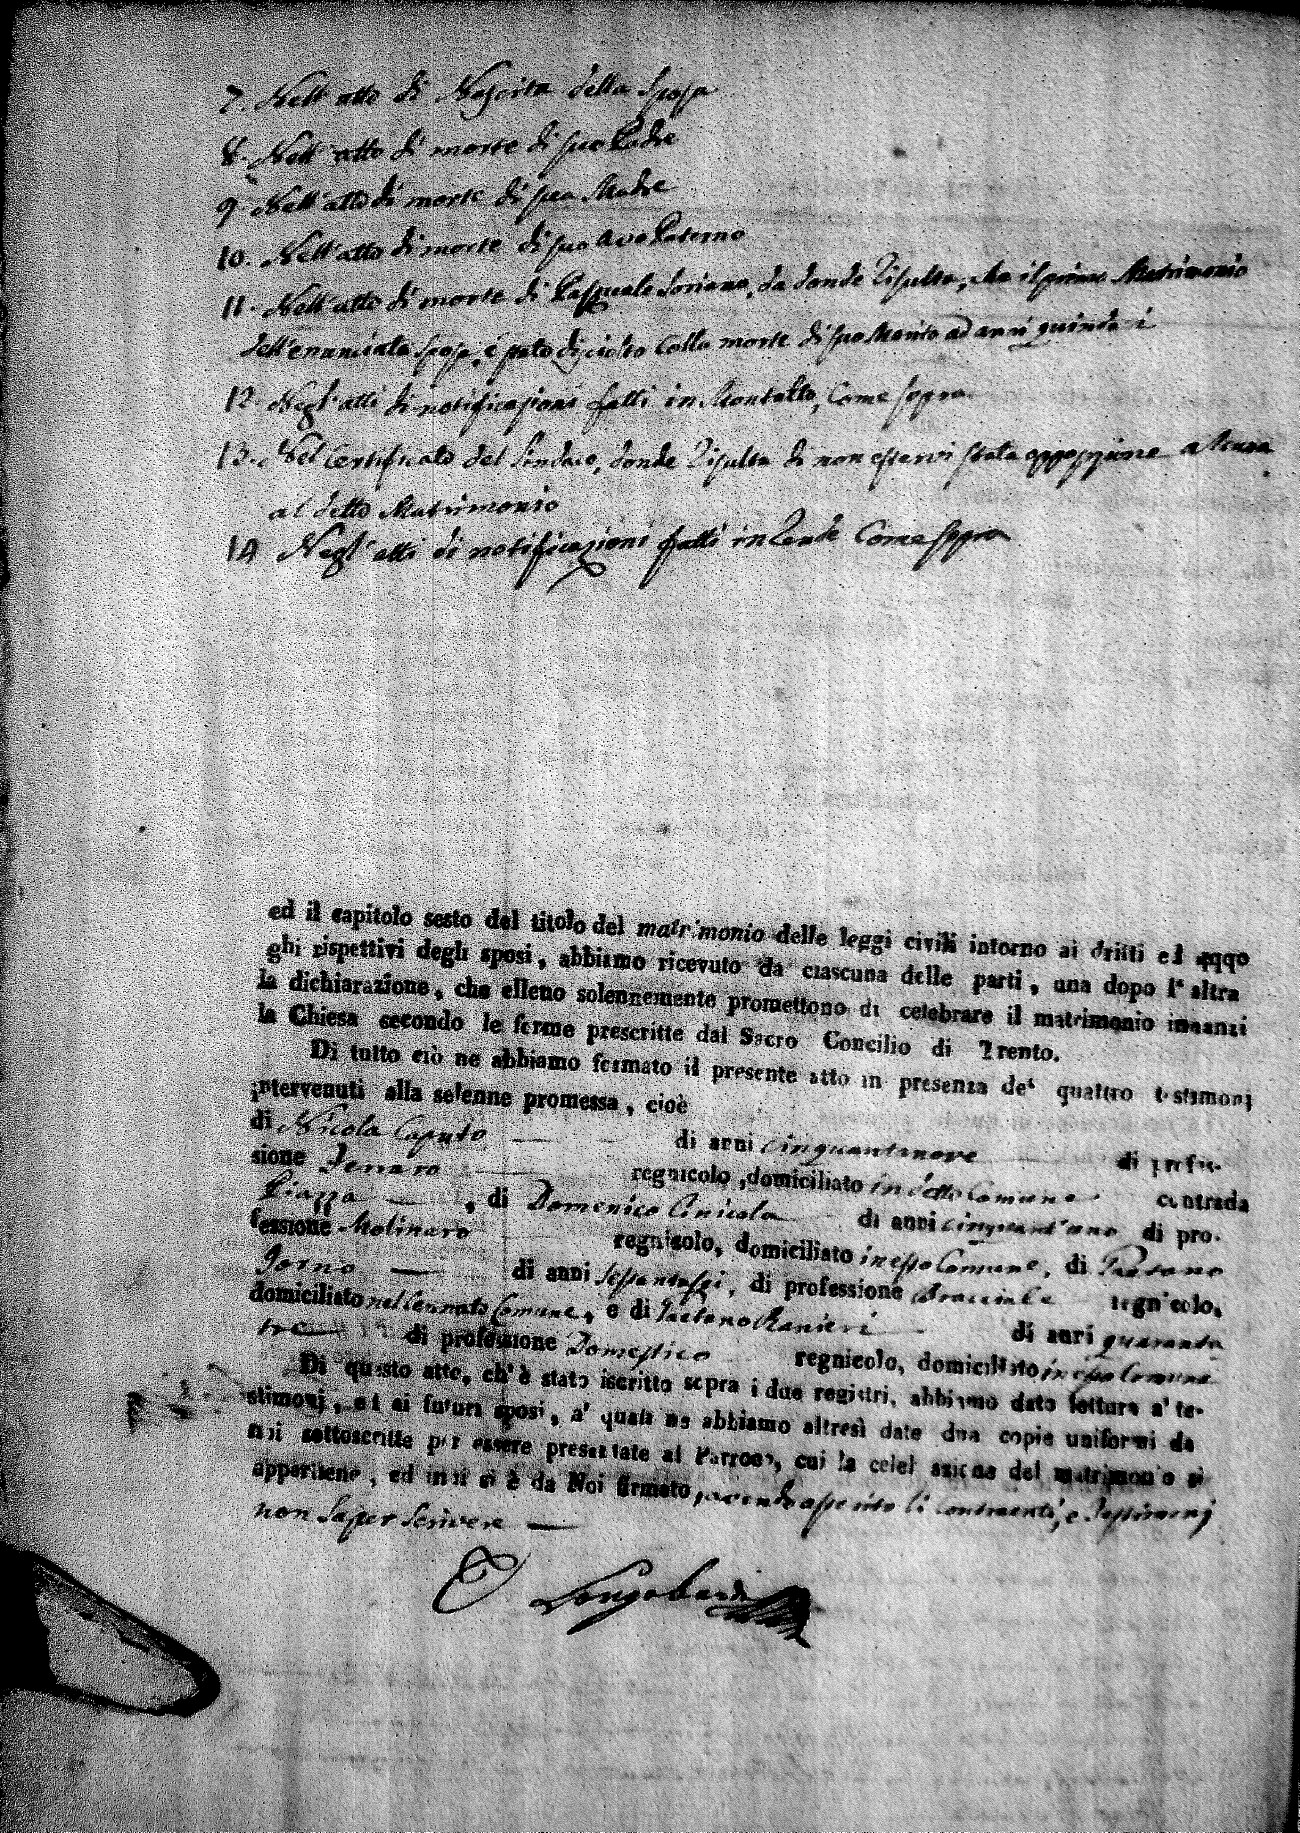 7. Nell'atto di Nascita della Sposa
8. Nell'atto di morte di suo Padre
9. Nell'atto di morte di sua Madre
10. Nell'atto di morte di suo avo Paterno
11. Nell'atto di morte di Pasquale Soriano, da donde risulta, che il primo Matrimonio
dell'enunciata sposa, è stato disciolto colla morte di suo Marito ad anni quindici
12. Negl'atti di notificazioni fatti in Montalto, Come sopra
13. Nel Certificato del Sindaco, donde risulta di non esservi stata opposizione alcuna
al detto Matrimonio
14 Negl'atti di notificazioni fatti in Rende Come sopra
ed il capitolo sesto del titolo del matrimonio delle leggi civili intorno ai dritti ed obbo
ghi rispettivi degli sposi, abbiamo ricevuto da ciascuna delle parti, una dopo l'altra
la dichiarazione, che elleno solennemente promettono di celebrare il matrimonio innanzi
la Chiesa secondo le forme prescritte dal Sacro Concilio di Trento.
Di tutto ciò ne abbiamo formato il presente atto in presenza de' quattro testimonj
intervenuti alla solenne promessa, cioè
di Nicola Caputo di anni cinquantanove di profes-
sione Ferraro regnicolo, domiciliato in detto Comune contrada
Piazza, di Domenico Cinicola di anni cinquant'uno di pro-
fessione Molinaro regnicolo, domiciliato in esso Comune, di Gaetano
Jorno di anni sessantasei, di professione Bracciale regnicolo,
domiciliato nel Cennato Comune, e di Gaetano Ranieri di anni quaranta
tre di professione Domestico regnicolo, domiciliato in esso Comune
Di questo atto, ch'è stato iscritto sopra i due registri, abbiamo dato lettura a' te-
stimonj, ed ai futuri sposi, a' quali ne abbiamo altresì date due copie uniformi da
noi sottoscritte per essere presentate al Parroco, cui la celebrazione del matrimonio si
appartiene, ed indi si è da Noi firmato, avendo asserito li Contraenti, e Testimonj
non saper scrivere
Longobardi